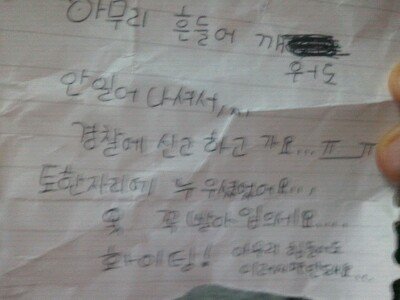 아무리 흔들어 깨
우+도
안일어나셔서,,..
경찰에 신고하고 가요... ㅠ_ㅠ
토한자리에 누우셨었어요...,
옷 꼭 빨아 입으세요.....
화이팅! 아무리 힘들어도